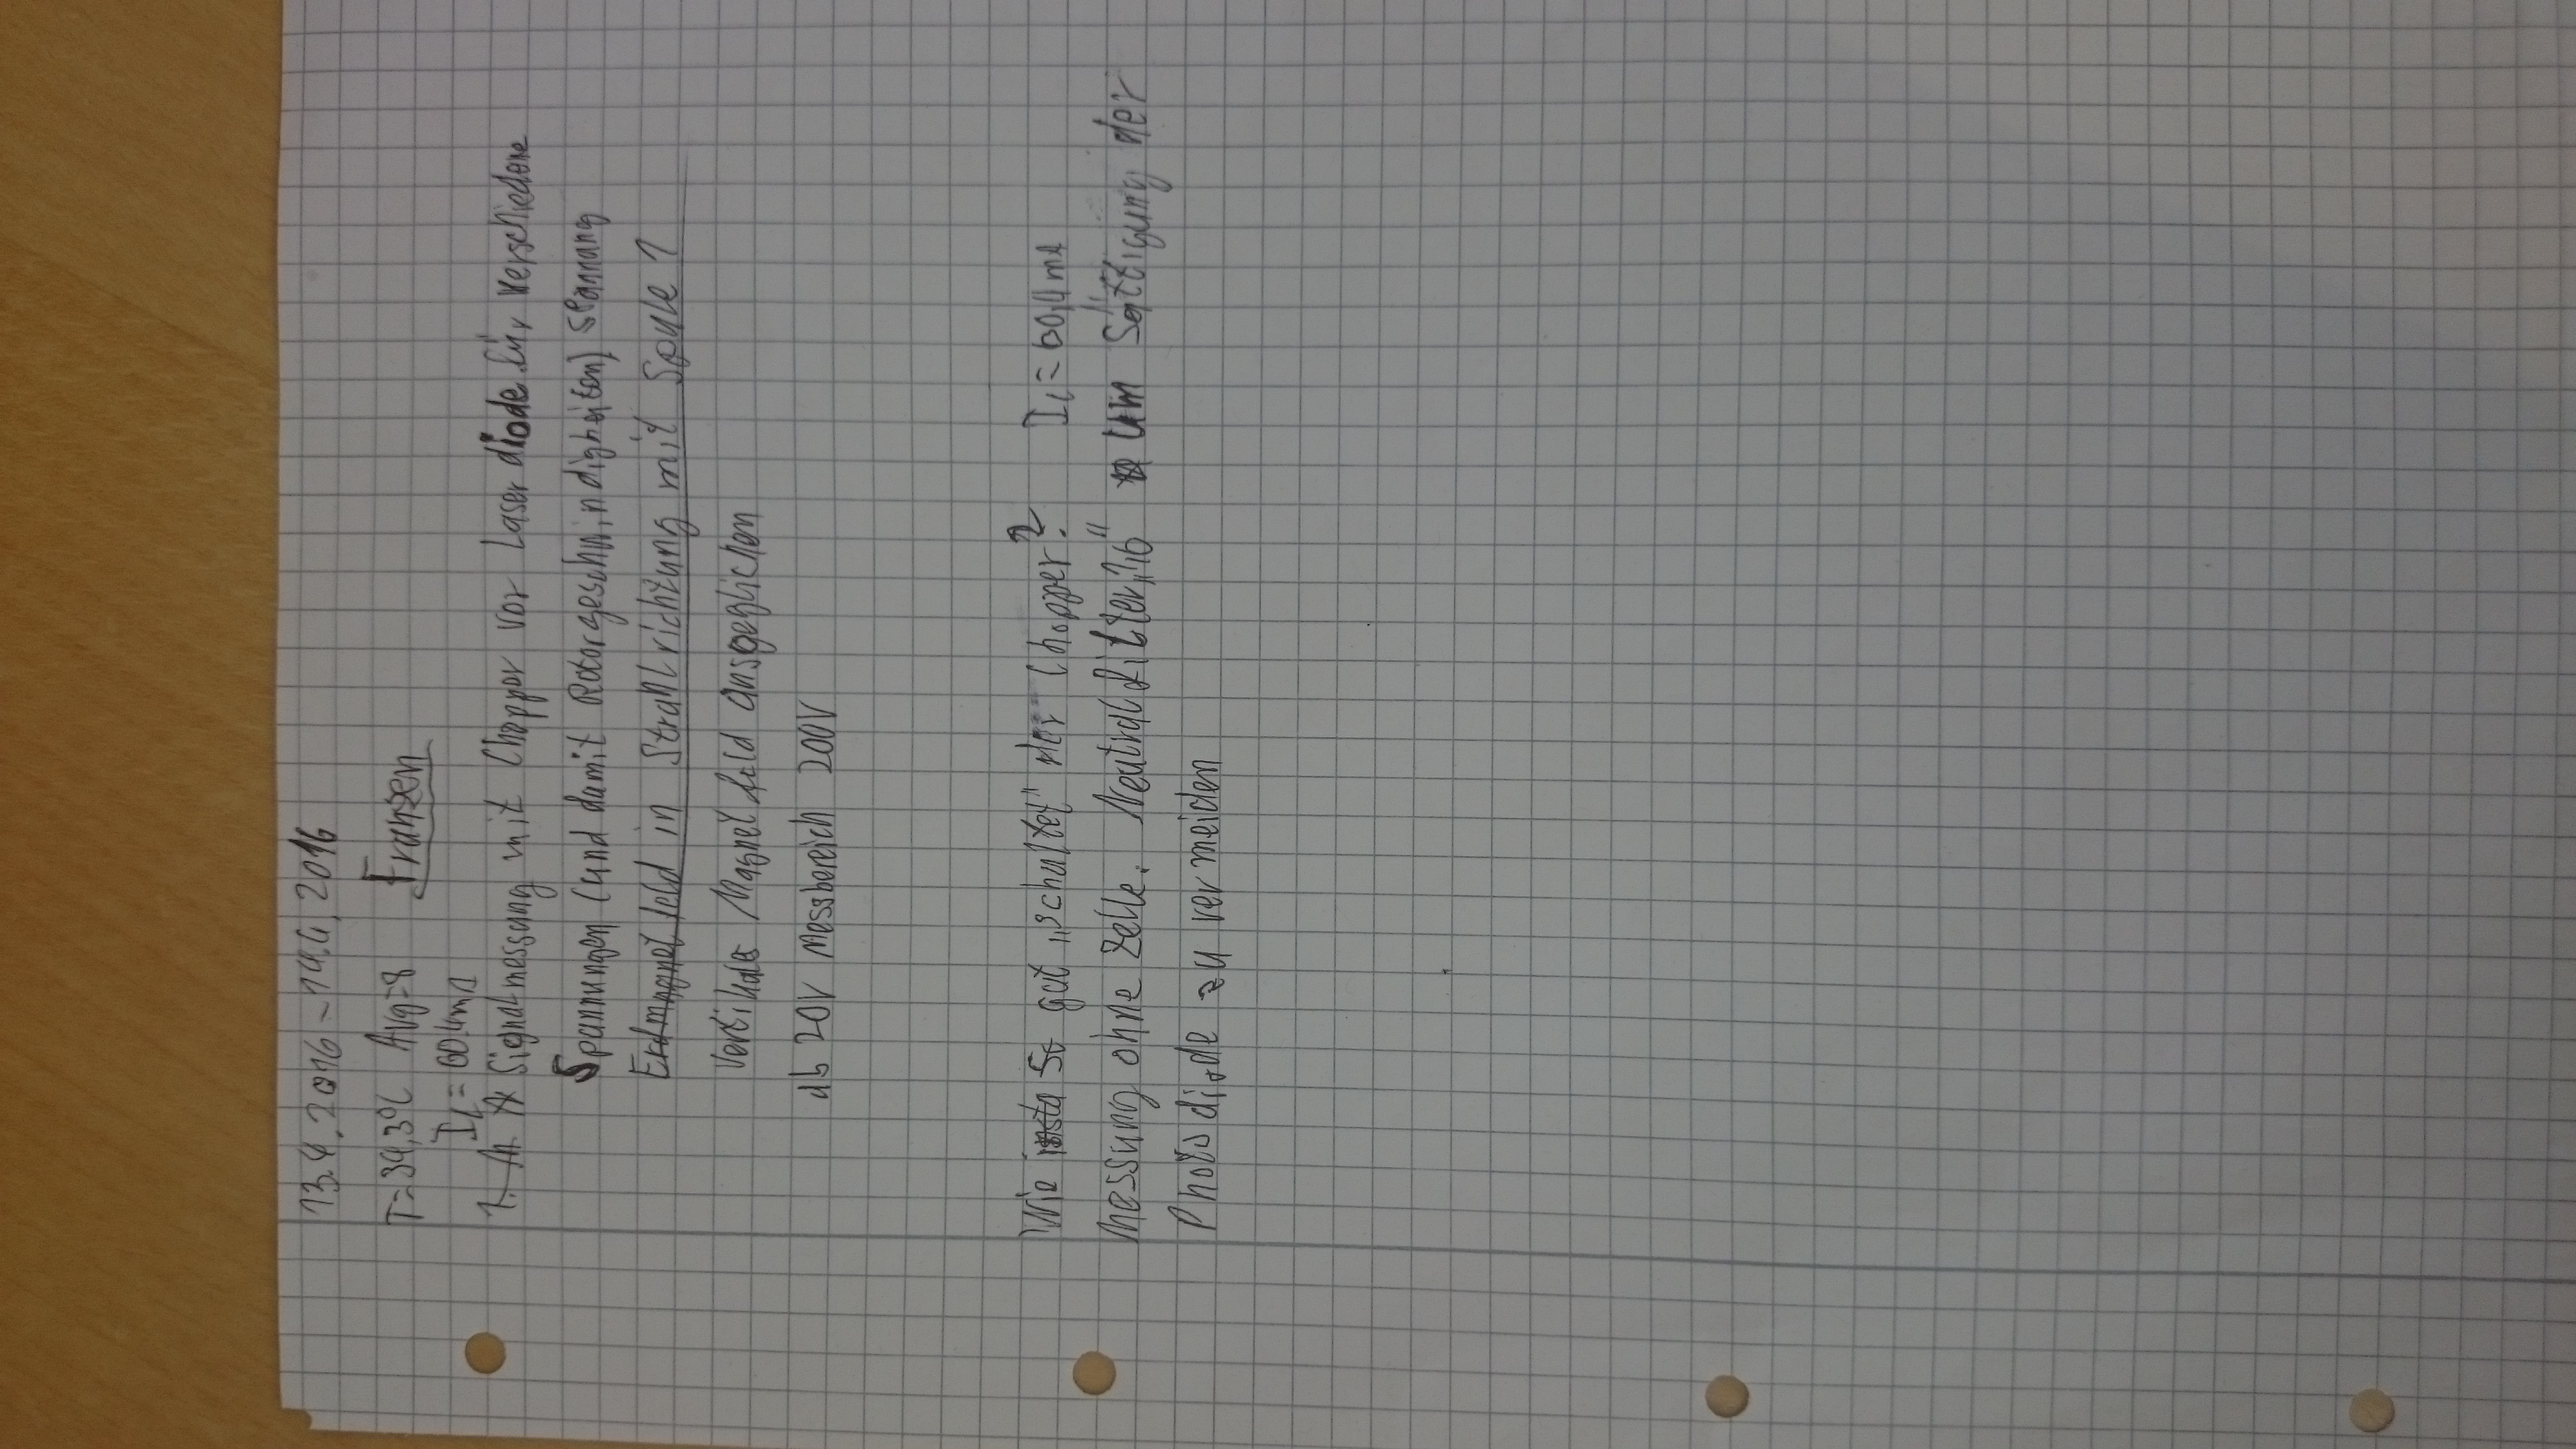 13.4.2016 - 14.4.2016
T=34,3°C Avg=8 Franzen
I_L = 60,4mA
Signalmessung mit Chopper vor Laserdiode für verschiedene
Spannungen (und damit Rotorgeschwindigkeiten) Spannung
Erdmagnetfeld in Strahlrichtung mit Spule 1
Vertikales Magnetfeld ausgeglichen
ab 20V Messbereich 200V
Wie gut „schaltet" der Chopper? I_L = 60,4 mA
Messung ohne Zelle. Neutralfilter um Sättigung der
Photodiode zu vermeiden